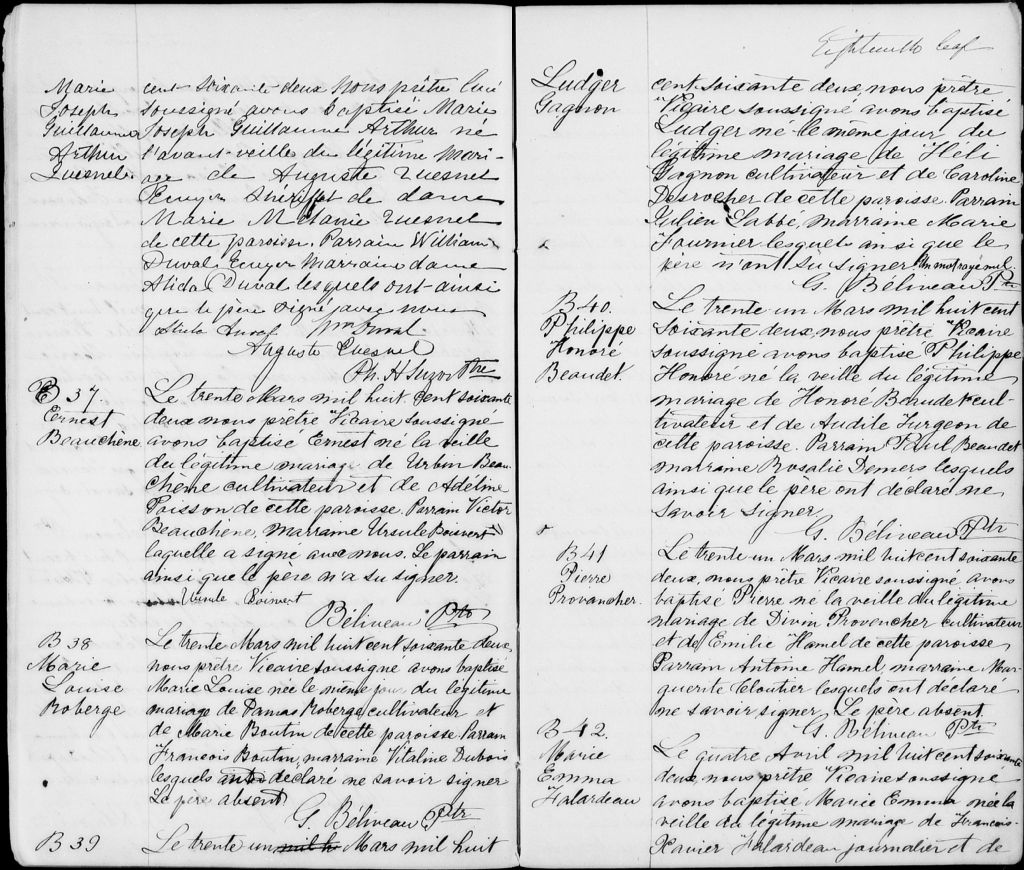 Marie
Joseph
Guillaume
Arthur
Quesnel
cent soixante deux nous prêtre Curé
soussigné avons baptisé Marie
Joseph Guillaume Arthur né
l'avant-veille du légitime mari-
age de Auguste Quesnel
Ecuyer Shériff et de dame
Marie Mélanie Quesnel
de cette paroisse. Parrain William
Duval Ecuyer Marraine dame
Alida Duval lesquels ont ainsi
que le père signé avec nous
Alida Duval Wm Duval
Auguste Quesnel
Ph. H. Suzor Ptre
B 37
Ernest
Beauchêne
Le trente Mars mil huit cent soixante
deux nous prêtre Vicaire soussigné
avons baptisé Ernest né la veille
du légitime mariage de Urbin Beau-
chène cultivateur et de Adéline
Poisson de cette paroisse. Parrain Victor
Beauchène, marraine Ursule Boisvert
laquelle a signé avec nous. Le parrain
ainsi que le père n'a su signer.
Ursule Boisvert
Béliveau Ptr
B 38
Marie
Louise
Roberge
Le trente Mars mil huit cent soixante deux,
nous prêtre Vicaire soussigné avons baptisé
Marie Louise née le même jour du légitime
mariage de Damas Roberge cultivateur et
de Marie Boutin de cette paroisse. Parrain
Francois Boutin, marraine Vitaline Dubois
lesquels ont declaré ne savoir signer
Le père absent
G. Béliveau Ptr
B 39
Le trente un mil h Mars mil huit
Eighteenth leaf
Ludger
Gagnon
cent soixante deux, nous prêtre
Vicaire soussigné avons baptisé
Ludger né le même jour du
légitime mariage de Héli
Gagnon cultivateur et de Caroline
Desrocher de cette paroisse. Parrain
Julien Labbé, marraine Marie
Fournier lesquels ainsi que le
père n'ont su signer. Un mot rayé nul.
G. Béliveau Ptr
B 40.
Philippe
Honoré
Beaudet.
Le trente un Mars mil huit cent
soixante deux, nous prêtre Vicaire
soussigné avons baptisé Philippe
Honoré né la veille du légitime
mariage de Honoré Beaudet cul-
tivateur et de Audite Turgeon de
cette paroisse. Parrain Paul Beaudet
marraine Rosalie Demers lesquels
ainsi que le père ont déclaré ne
savoir signer
G. Béliveau Ptr
B 41
Pierre
Provancher.
Le trente un Mars mil huit cent soixante
deux, nous prêtre Vicaire soussigné avons
baptisé Pierre né la veille du légitime
mariage de Divin Provencher cultivateur
et de Emilie Hamel de cette paroisse
Parrain Antoine Hamel marraine Mar-
guerite Cloutier lesquels ont déclaré
ne savoir signer. Le père absent
G. Béliveau Ptr
B 42.
Marie
Emma
Falardeau
Le quatre Avril mil huit cent soixante
deux, nous prêtre Vicaire soussigné
avons baptisé Marie Emma née la
veille du légitime mariage de Francois-
Xavier Falardeau journalier et de